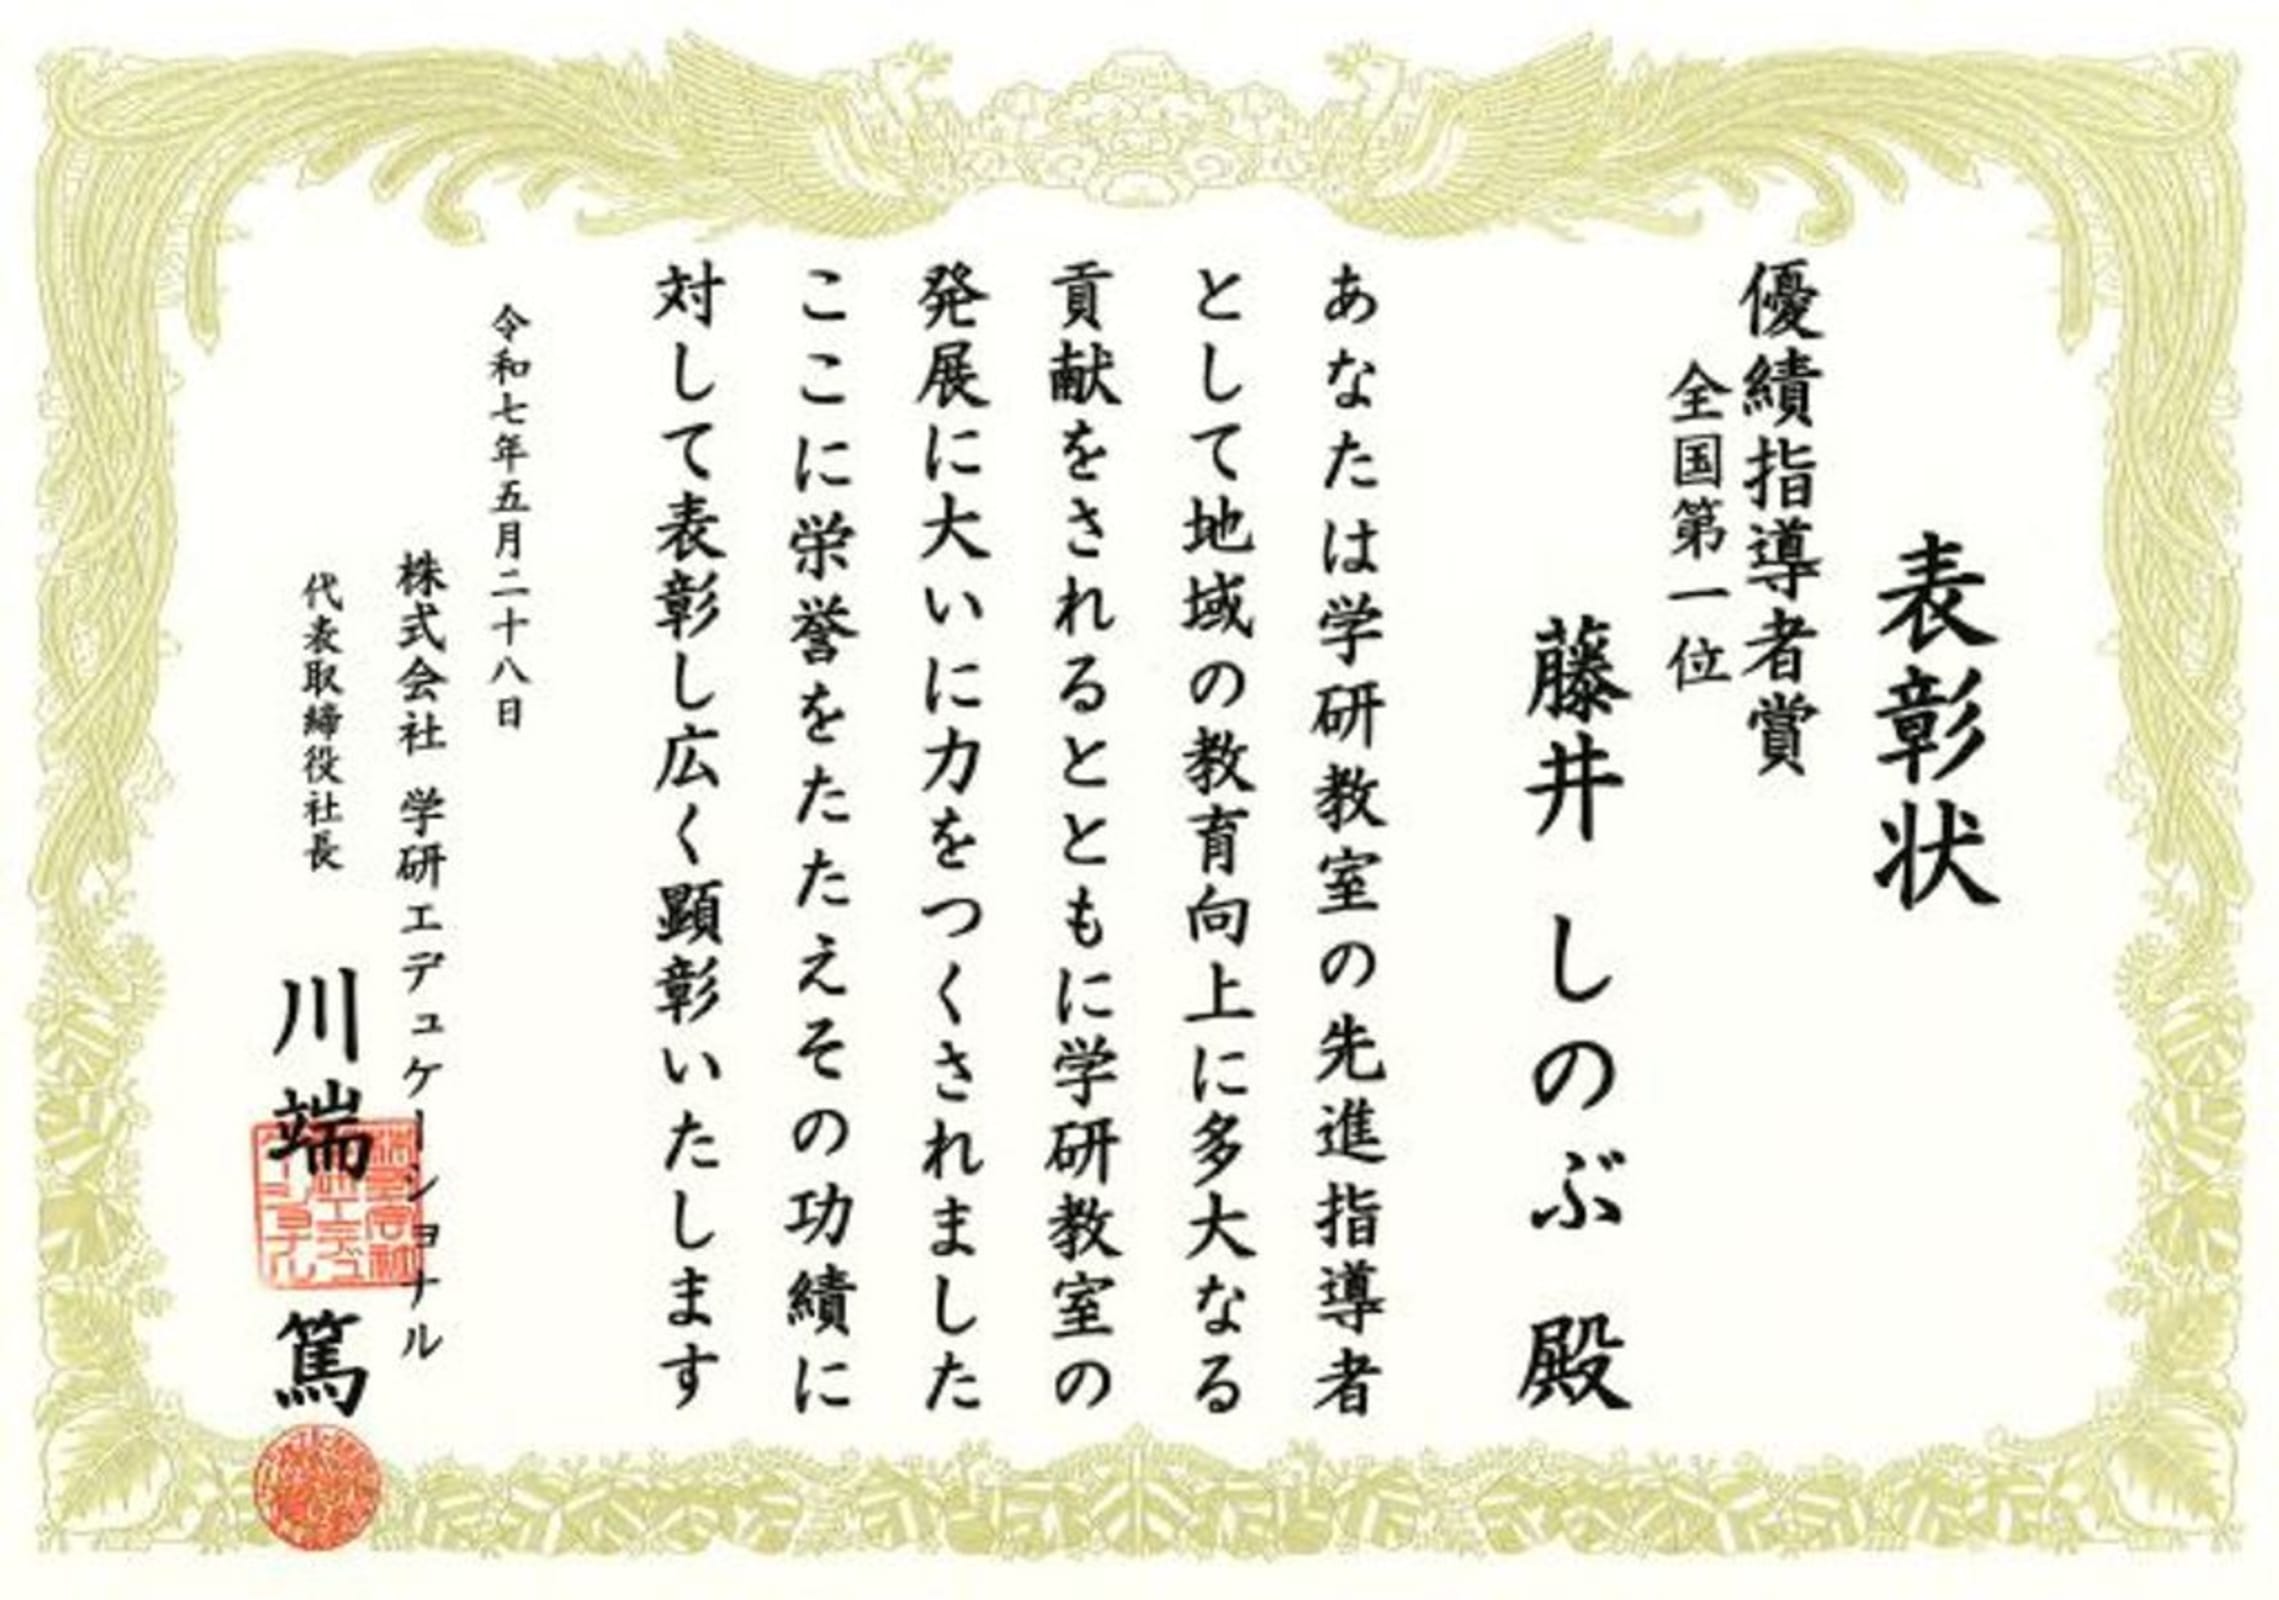 表彰状
優績指導者賞
全国第一位
藤井 しのぶ 殿
あなたは学研教室の先進指導者
として地域の教育向上に多大なる
貢献をされるとともに学研教室の
発展に大いに力をつくされました
ここに栄誉をたたえその功績に
対して表彰し広く顕彰いたします
令和七年五月二十八日
株式会社 学研エデュケーショナル
代表取締役社長 川端 篤